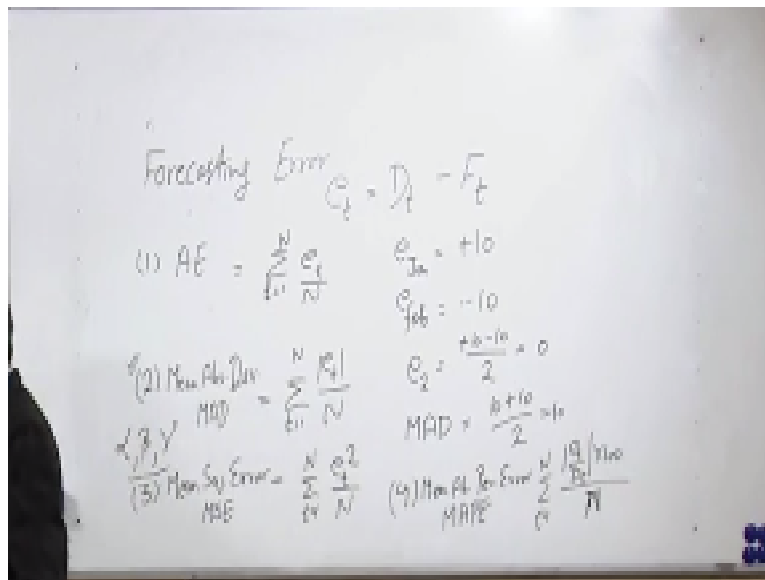 Forecasting Error e_t = D_t - F_t
(1) AE = \sum_{t=1}^{N} \frac{e_t}{N}
e_{Jan} = +10
e_{feb} = -10
e_2 = \frac{+10-10}{2} = 0
(2) Mean Abs Dev MAD = \sum_{t=1}^{N} \frac{|e_t|}{N}
MAD = \frac{10+10}{2} = 10
α, β, γ
(3) Mean Sq Error MSE = \sum_{t=1}^{N} \frac{e_t^2}{N}
(4) Mean Ab Per Error MAPE \sum_{t=1}^{N} \frac{|\frac{e_t}{D_t}| × 100}{N}